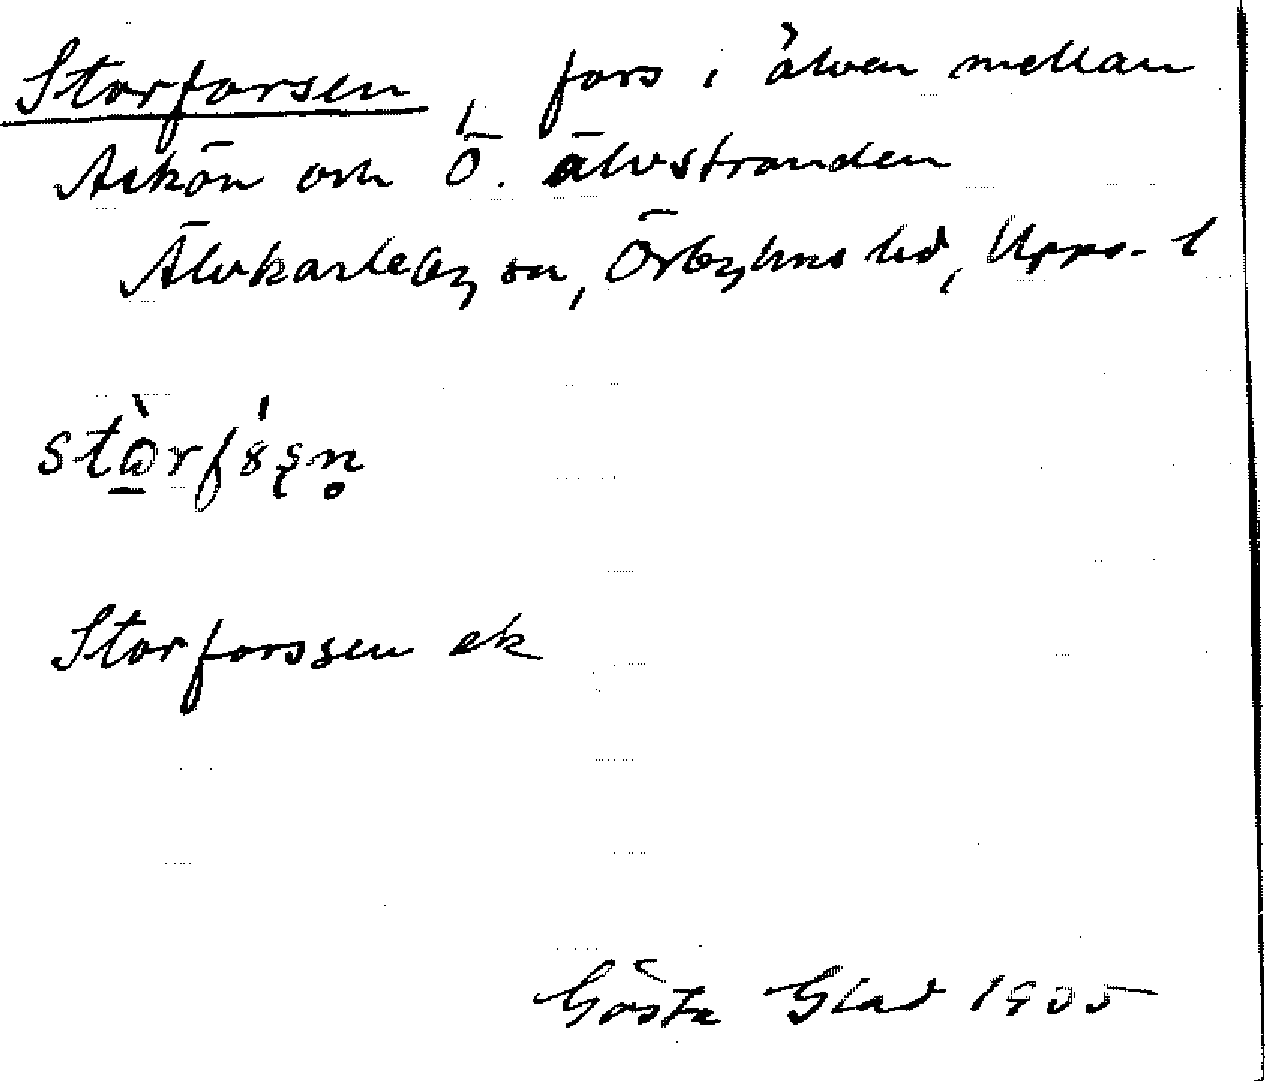 Storforsen, fors i älven mellan
och Ö. älvstranden
Älvkarleby sn, Örbyhus hd, Upps. l
Storforssen ek
Gösta Glad 1905